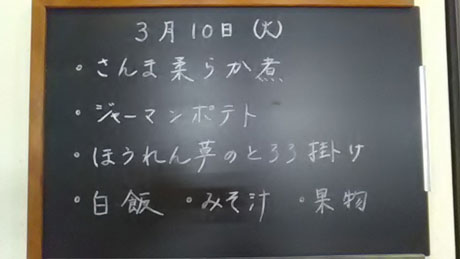 3月10日(火)
・さんま柔らか煮
・ジャーマンポテト
・ほうれん草のとろろ掛け
・白飯 ・みそ汁 ・果物